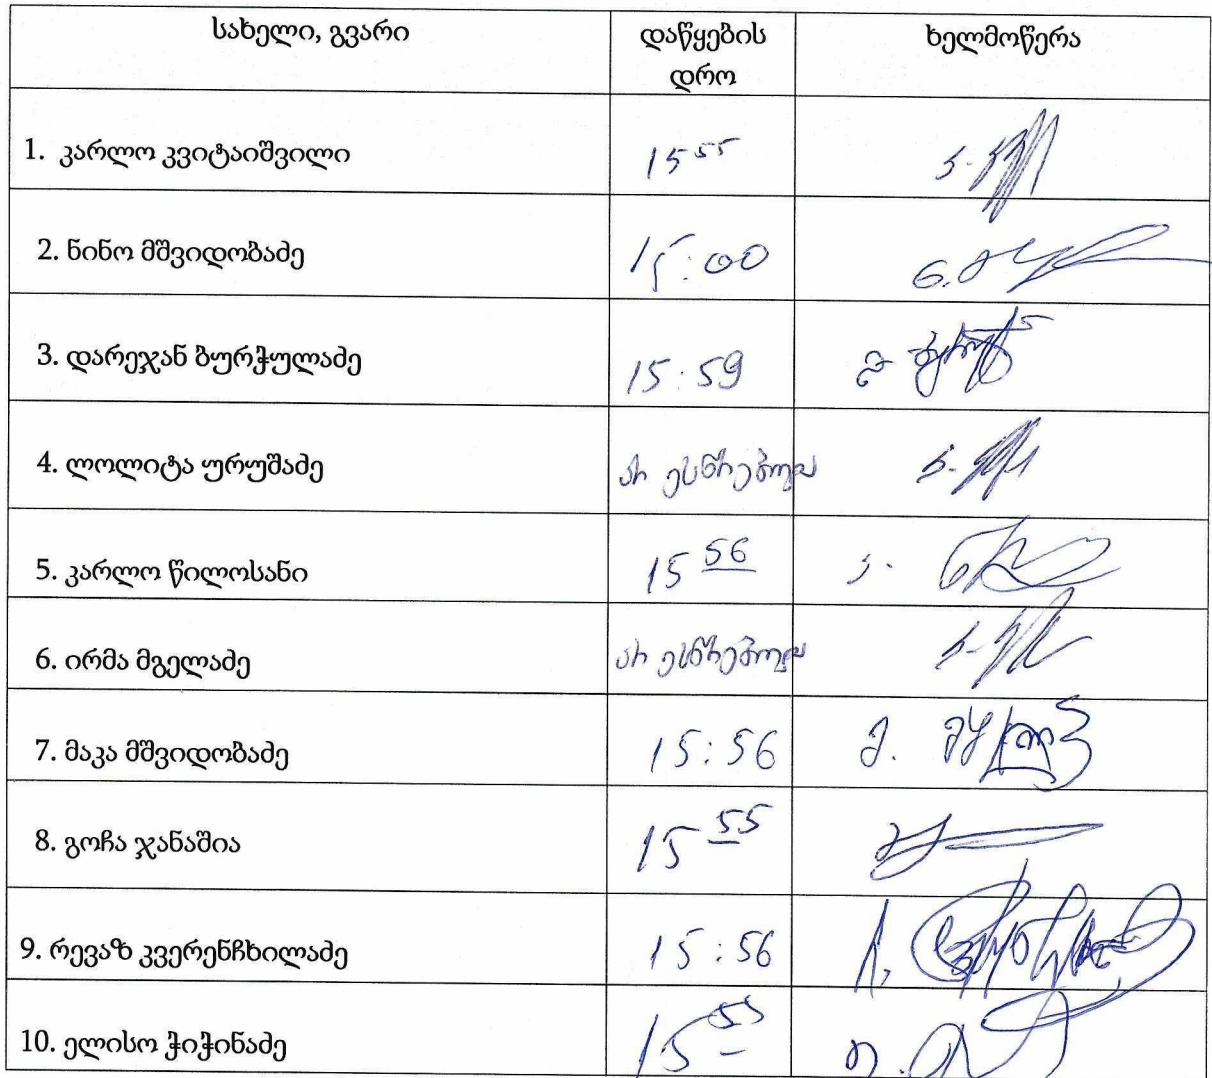 სახელი, გვარი
დაწყების
დრო
ხელმოწერა
1. კარლო კვიტაიშვილი 15 55
2. ნინო მშვიდობაძე 15:00
3. დარეჯან ბურჭულაძე 15:59
4. ლოლიტა ურუშაძე არ ესწრებოდა
5. კარლო წილოსანი 15 56
6. ირმა მგელაძე არ ესწრებოდა
7. მაკა მშვიდობაძე 15:56
8. გოჩა ჯანაშია 15 55
9. რევაზ კვერენჩხილაძე 15:56
10. ელისო ჭიჭინაძე 15 55